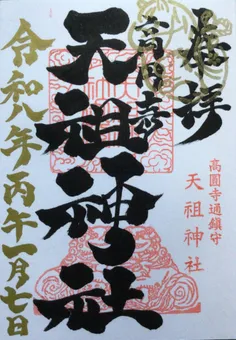 奉拝
高円寺
天祖神社
令和八年丙午一月七日
高圓寺過鎮守
天祖神社